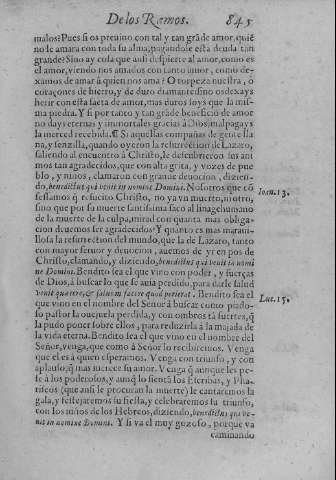 De los Ramos. 845
malos? Pues si os preuino con tal y tan grãde amor, quiẽ
no le amara con toda su alma, pagandole esta deuda tan
grande? Sino ay cosa que assi despierte al amor, como es
el amor, viendo nos amados con tanto amor, como de-
xamos de amar à quien nos ama? O torpeza nuestra, ò
coraçones de hierro, y de duro diamante sino os dexays
herir con esta saeta de amor, mas duros soys que la mis-
ma piedra. Y si por tanto y tan grãde beneficio de amor
no days eternas y immortales gracias à Dios, mal pagays
la merced recebida. ¶ Si aquellas compañas de gente lla
na, y senzilla, quando oyeron la resurrection de Lazaro,
saliendo al encuentro à Christo, le descubrieron los ani
mos tan agradecidos, que con alta grita, y vozes de pue
blo, y niños, clamaron con grande deuocion, dizien-
do, benedictus qui venit in nomine Domini. Nosotros que cõ
fessamos q̃ resucito Christo, no ya vn muerto, ni otro,
sino que por su muerte santissima saco al linage humano
de la muerte de la culpa, mirad con quanta mas obliga-
cion deuemos ser agradecidos? Y quanto es mas maraui-
llosa la resurrection del mundo, que la de Lazaro, tanto
con mayor feruor y deuocion, auemos de yr en pos de
Christo, clamando, y diziendo, benedictus qui venit in nomi
ne Domini. Bendito sea el que vino con poder, y fuerças
de Dios, à buscar lo que se auia perdido, para darle salud
venit quærere, & saluum facere quod perierat. Bendito sea el
que vino en el nombre del Señor à buscar como piado-
so pastor la ouejuela perdida, y con ombros tã fuertes, q̃
la pudo poner sobre ellos, para reduzirla à la majada de
la vida eterna. Bendito sea el que vino en el nombre del
Señor, venga, que como à Señor lo recibiremos. Venga
que el es à quien esperamos. Venga con triunfo, y con
aplauso, q̃ mas merece su amor. Venga q̃ aunque les pe-
se à los poderosos, y aunq̃ lo sientã los Escribas, y Pha-
riseos (que aussi le procuran la muerte) le cantaremos la
gala, y festejaremos su fiesta, y celebraremos su triunfo,
con los niños de los Hebreos, diziendo, benedictus qui ve-
nit in nomine Domini. Y si va el muy gozoso, porque va
caminando
Ioan. 13.
Luc. 15.